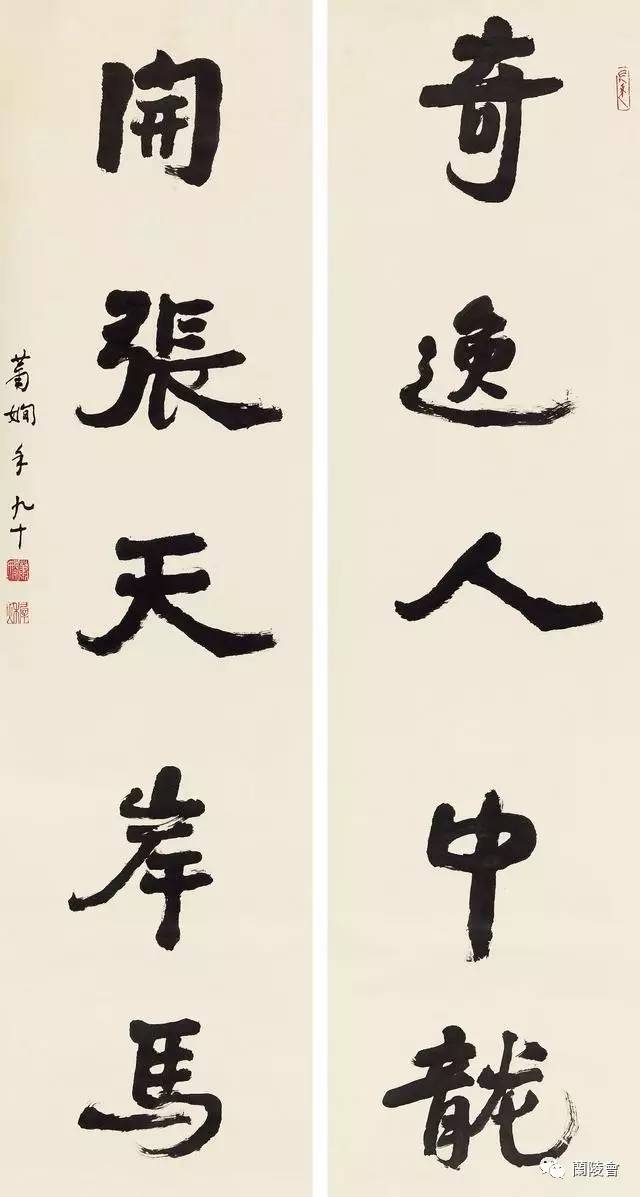 奇逸人中龍
開張天岸馬
蕭嫻年九十
蘭陵會